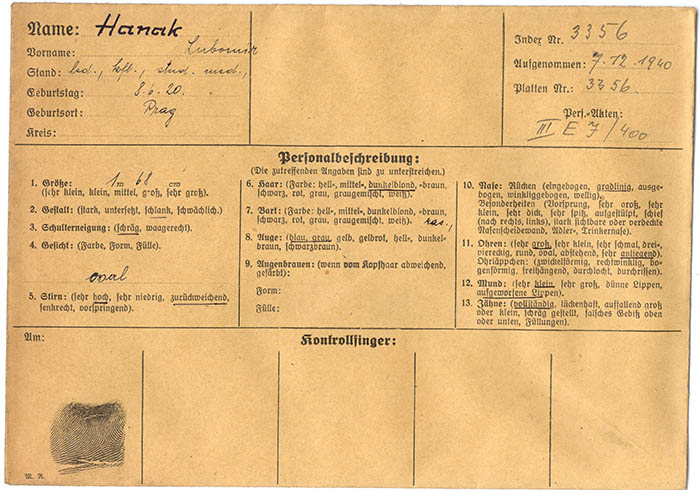 Name: Hanak
Vorname: Lubomir
Stand: led., kfl., stud. med.,
Geburtstag: 8.6.20.
Geburtsort: Prag
Kreis:
Index Nr. 3356
Aufgenommen: 7.12.1940
Platten Nr.: 3356.
Pers.-Akten:
III E 7/400
Personalbeschreibung:
(Die zutreffenden Angaben sind zu unterstreichen.)
1. Größe: 1 m 68 cm
(sehr klein, klein, mittel, groß, sehr groß).
2. Gestalt: (stark, untersetzt, schlank, schwächlich).
3. Schulterneigung: (schräg, waagerecht).
4. Gesicht: (Farbe, Form, Fülle).
oval
5. Stirn: (sehr hoch, sehr niedrig, zurückweichend,
senkrecht, vorspringend).
6. Haar: (Farbe: hell-, mittel-, dunkelblond, -braun,
schwarz, rot, grau, graugemischt, weiß).
7. Bart: (Farbe: hell-, mittel-, dunkelblond, -braun,
schwarz, rot, grau, graugemischt, weiß). ras.,
8. Auge: (blau, grau, gelb, gelbrot, hell-, dunkel-
braun, schwarzbraun).
9. Augenbrauen: (wenn vom Kopfhaar abweichend,
gefärbt):
Form:
Fülle:
10. Nase: Rücken (eingebogen, gradlinig, ausge-
bogen, winkliggebogen, wellig).
Besonderheiten (Vorsprung, sehr groß, sehr
klein, sehr dick, sehr spitz, aufgestülpt, schief
(nach rechts, links), stark sichtbare oder verdeckte
Nasenscheidewand, Adler-, Trinkernase).
11. Ohren: (sehr groß, sehr klein, sehr schmal, drei-,
viereckig, rund, oval, abstehend, sehr anliegend).
Ohrläppchen: (zwickelförmig, rechtwinklig, bo-
genförmig, freihängend, durchlocht, durchrissen).
12. Mund: (sehr klein, sehr groß, dünne Lippen,
aufgeworfene Lippen).
13. Zähne: (vollständig, lückenhaft, auffallend groß
oder klein, schräg gestellt, falsches Gebiß oben
oder unten, Füllungen).
Am:
Kontrollfinger:
M. R.